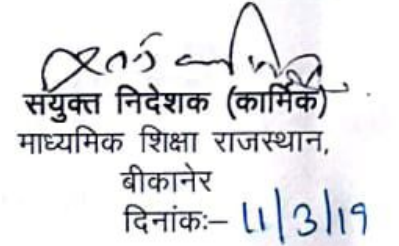 संयुक्त निदेशक (कार्मिक)
माध्यमिक शिक्षा राजस्थान,
बीकानेर
दिनांकः– 11/3/19